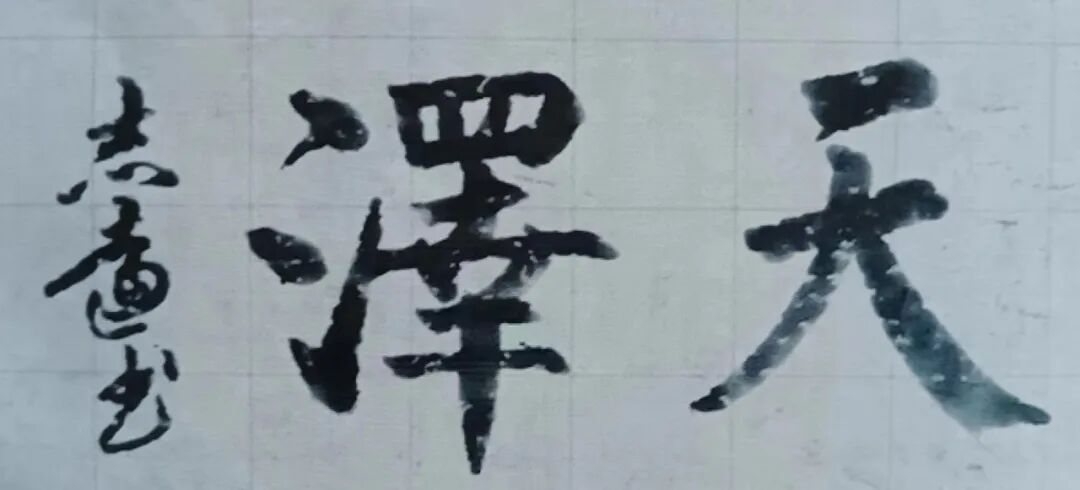 天澤
志道书